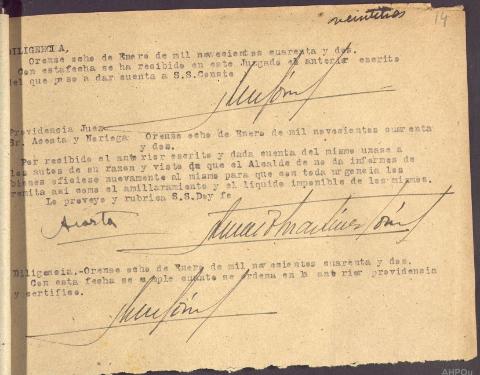 veintitres 14
DILIGENCIA,
Orense ocho de Enero de mil novecientos cuarenta y dos.
Con estafecha se ha recibido en este Juzgado el anterior escrito
del que paso a dar cuenta a S.S.Conste
Providencia Juez
Sr. Acosta y Noriega Orense ocho de Enero de mil novecientos cuarenta
y dos.
Por recibido el anterior escrito y dada cuenta del mismo unase a
los autos de su razon y visto que el Alcalde de no da informes de
bienes oficiese nuevamente al mismo para que con toda urgencia los
remita asi como el amillaramiento y el liquido imponible de los mismos.
Lo proveyo y rubrica S.S.Doy fe
Acosta
Martinez
Diligencia.-Orense ocho de Enero de mil novecientos cuarenta y dos.
Con esta fecha se cumple cuanto se ordena en la anterior providencia
y certifico.
AHPOu